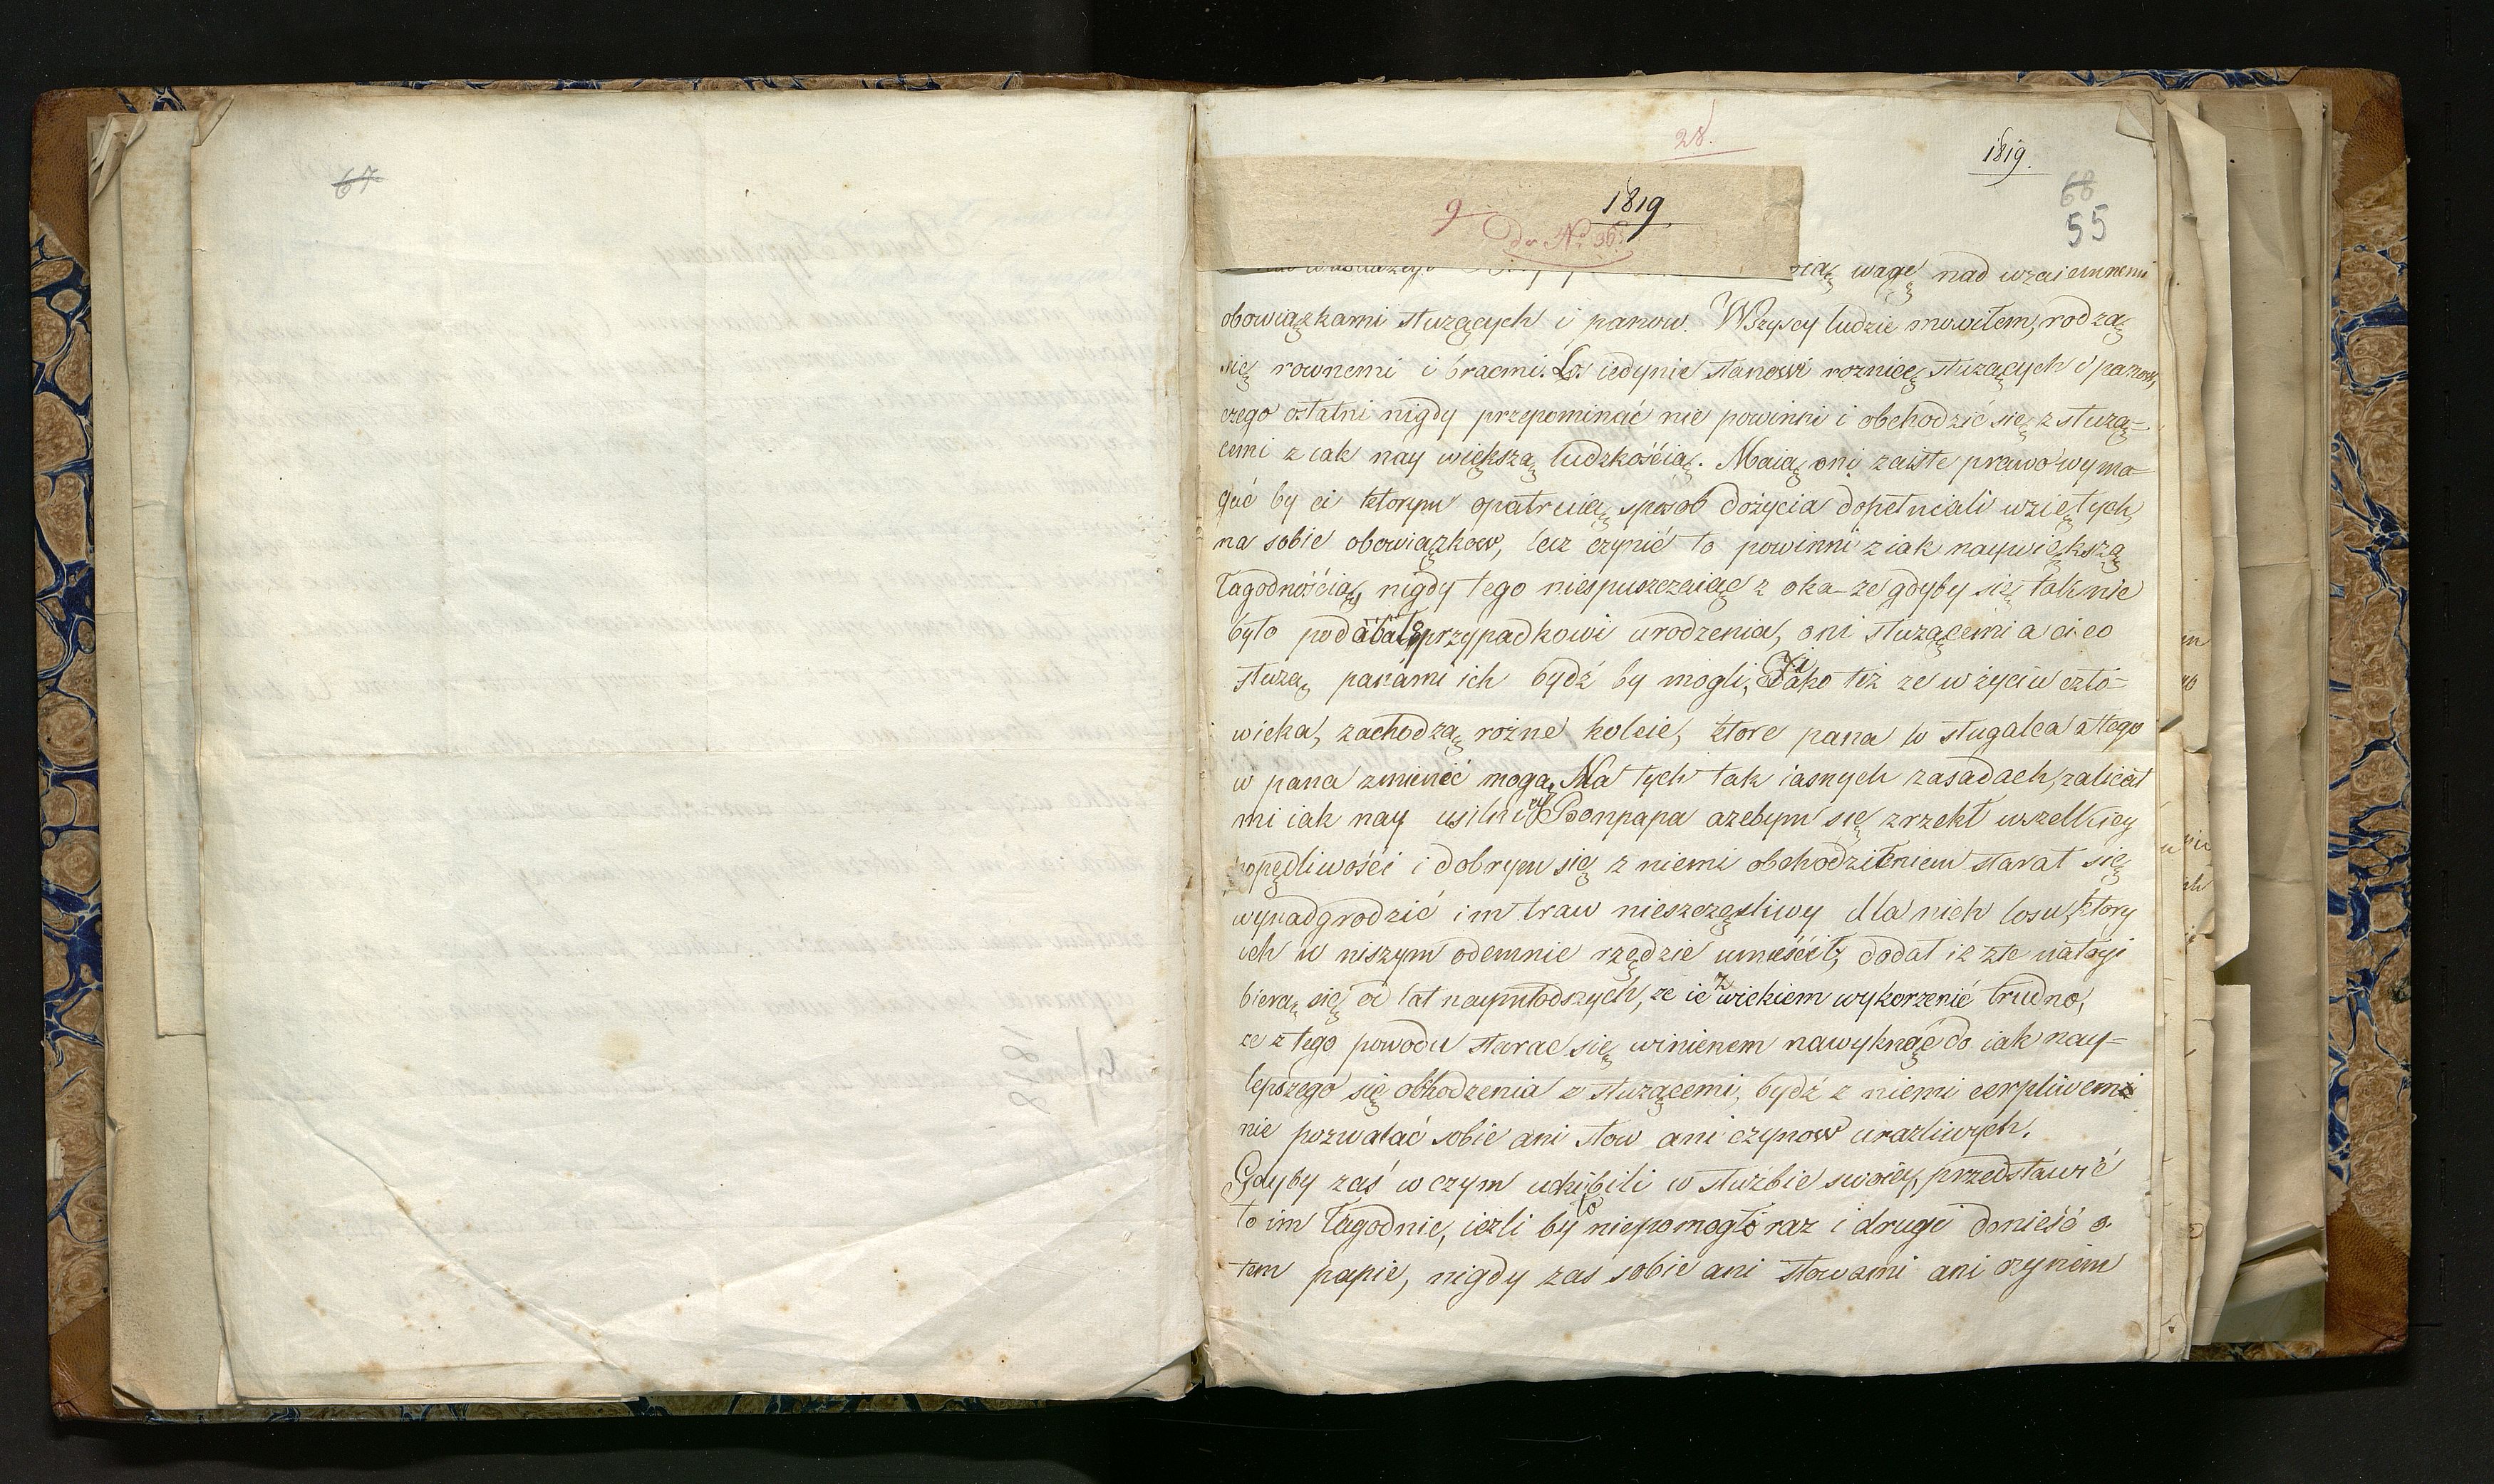 67
28.
1819.
1819
9
Do No 36
68
55
wagę nad wzaiemnemi
obowiązkami służących i panow. Wszyscy ludzie mowiłem, rodzą
się rownemi i bracmi. Los iedynie stanowi roznicę służących i panow,
czego ostatni nigdy przepominać nie powinni i obchodzić się z służą-
cemi z iak nay większą ludzkością. Maią oni zaiste prawo wyma-
gać by ci ktorym opatruią sposob dożycia dopełniali wziętych
na sobie obowiązkow, lecz czynić to powinni z iak naywiększą
łagodnością, nigdy tego niespuszczaiąc z oka ze gdyby się tak nie
było podabało przypadkowi urodzenia, oni służącemi a ci co
służą panami ich bydź by mogli, Jako też ze w życiu czło-
wieka, zachodzą rożne koleie, ktore pana w sługalca a tego
w pana zmienić mogą. Na tych tak iasnych zasadach, zalicał
mi iak nay usilniey Bonpapa azebym się zrzekł wszelkiey
popędliwośći i dobrym się z niemi obchodzeniem starał się
wynadgrodzić im traw nieszczęsliwy dla nich losu, ktory
ich w niszym odemnie rzędzie umieścił, dodał iż złe nałogi
bierą się od lat naymłodszych, ze ie z wiekiem wykorzenić trudno,
ze z tego powodu starac się winienem nawyknąć do iak nay-
lepszego się obhodzenia z służącemi, bydź z niemi cerpliwem
nie pozwalać sobie ani słow ani czynow urazliwych.
Gdyby zaś w czym uchibili w służbie swoiey, przedstawić
to im łagodnie, iezli by to niepomogło raz i drugi donieść o
tem papie, nigdy zas sobie ani słowami ani czynem